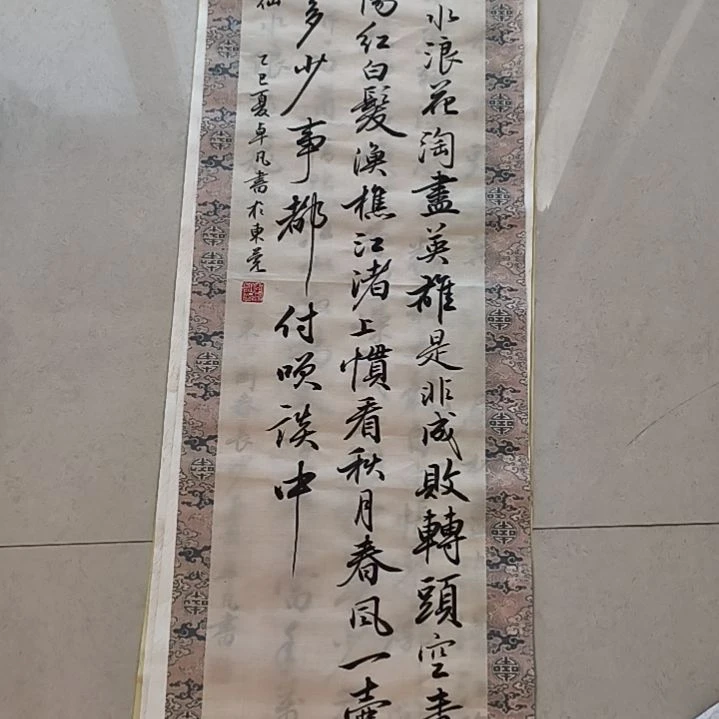 水浪花淘盡英雄是非成敗轉頭空青
陽紅白髮漁樵江渚上慣看秋月春風一壺
多少事都付咲談中
仙 乙巳夏卓凡書於東莞